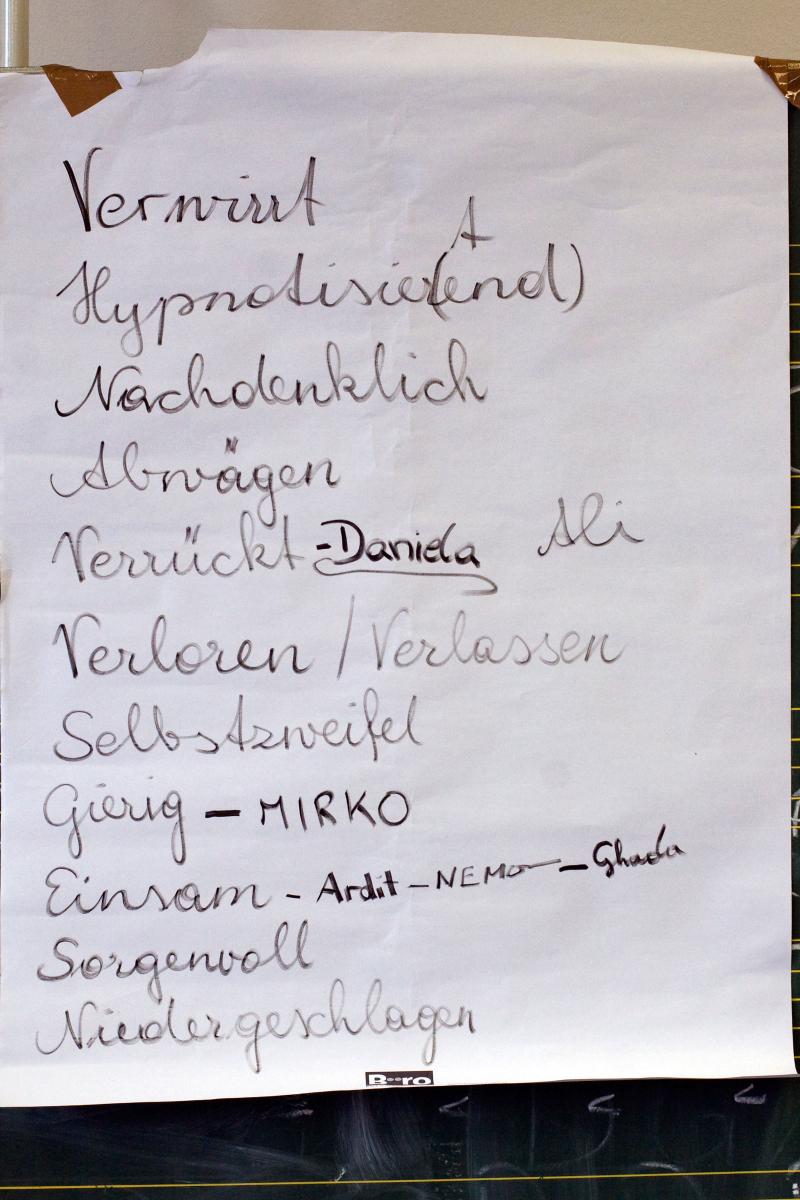 Verwirrt
t
Hypnotisier(end)
Nachdenklich
Abwägen
Verrückt - Daniela Ali
Verloren / Verlassen
Selbstzweifel
Gierig - MIRKO
Einsam - Ardit - NEMO - Ghada
Sorgenvoll
Niedergeschlagen
Büro